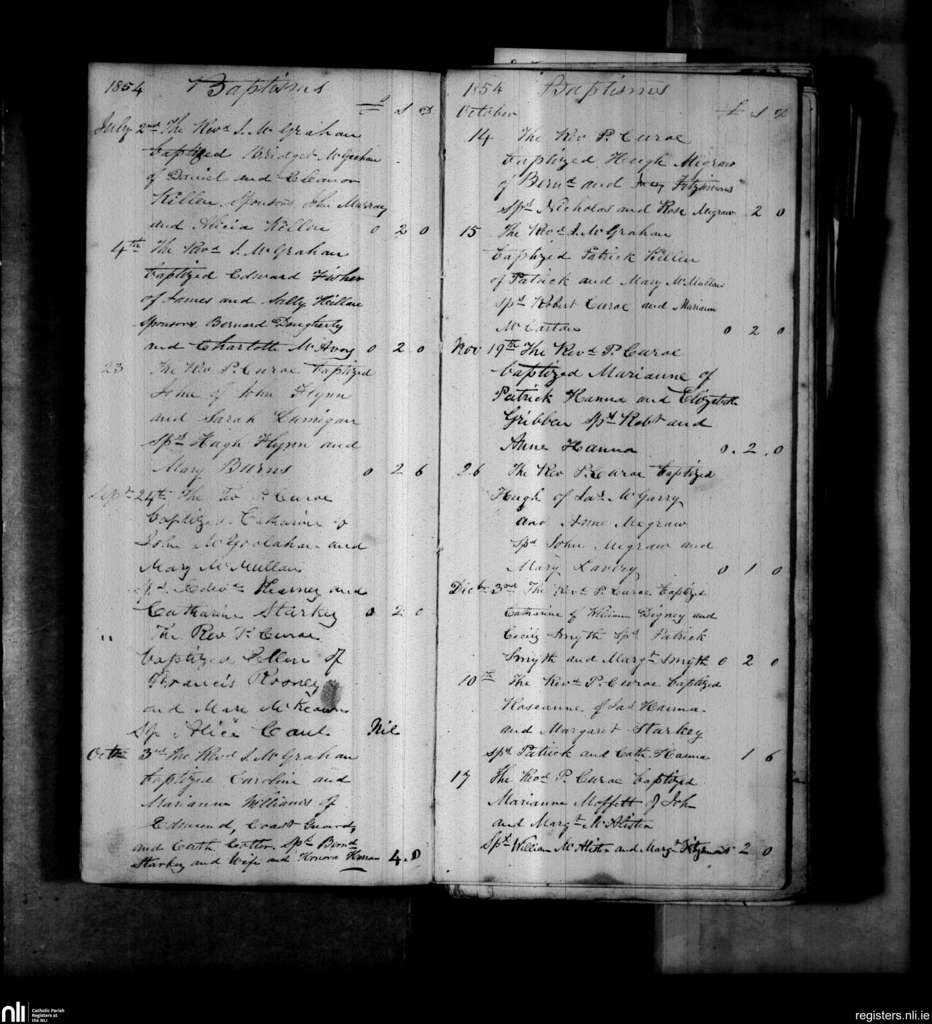 1854 Baptisms
£ s d
July 2nd The Revd. J. McGrahan
baptized Bridget McGrahan
of Daniel and Eleanor
Killen. Sponsors John Murray
and Alicia Killen 0 2 0
4th The Revd. J. McGrahan
baptized Edward Fisher
of James and Sally Killen
Sponsors Bernard Dougherty
and Charlotte McAvoy 0 2 0
23 The Rev P. Curoe baptized
John of John Flynn
and Sarah
Spd. Hugh Flynn and
Mary Burns 0 2 6
Sept. 24th The P. Curoe
baptized Catharine of
John McGoolahan and
Mary McMullan
Spd. Edwd. Kearney and
Catharine Starkey 0 2 0
" The Rev P. Curoe
baptized Ellen of
Francis Rooney
and McKeown
Sp Alice Nil
Octbr 3rd The Revd J. McGrahan
baptized Caroline and
Marianne Williams of
Edmund, Coast Guard,
and Cath. Cotter. Spd. Bernd.
Starkey and Wife and Honora 4.0
1854 Baptisms
October £ s d
14 The Rev P. Curoe
baptized Hugh Megraw
of Bernd. and Fitzsimons
Spd. Nicholas and Rose Megraw 2 0
15 The Revd. J. McGrahan
baptized Patrick Killen
of Patrick and Mary McMullan
Spd. Robert Curoe and Mariann
McCartan 0 2 0
Nov 19th The Revd. P. Curoe
baptized Marianne of
Patrick Hanna and Elizabeth
Gribben Spd. Robt and
Anne Hanna 0.2.0
26 The Rev P. Curoe baptized
Hugh of Jas. McGarry
and Anne Megraw
Spd John Megraw and
Mary Lavery 0 1 0
Dicbr 3rd The Rev P. Curoe baptizd
Catharine of William Digney and
Cecily Smyth Spd. Patrick
Smyth and Margt. Smyth 0 2 0
10th The Revd. P. Curoe baptized
Roseanne of Jas Hanna
and Margaret Starkey
Spd. Patrick and Cath. Hanna 1 6
17 The Revd. P. Curoe baptized
Marianne Moffett of John
and Margt. McAlister
Spd. William McAlister and Margt Fitzsimons 2 0
nli Catholic Parish
Registers at
the NLI
registers.nli.ie